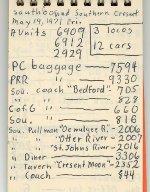 Southbound Southern Crescent
May 19, 1971 Fri.
A Units 6909 3 locos
6912 12 cars
2929
PC baggage — 7594
PRR " — 9330
Sou. coach "Bedford" 705
" " — 828
C of G " — 660
Sou " — 816
Sou. Pullman "Ocmulgee R." — 2006
" " "Otter River" — 2007
" " "St. Johns River" 2016
" Diner — 3306
" Tavern "Crescent Moon" — 2352
" Coach —